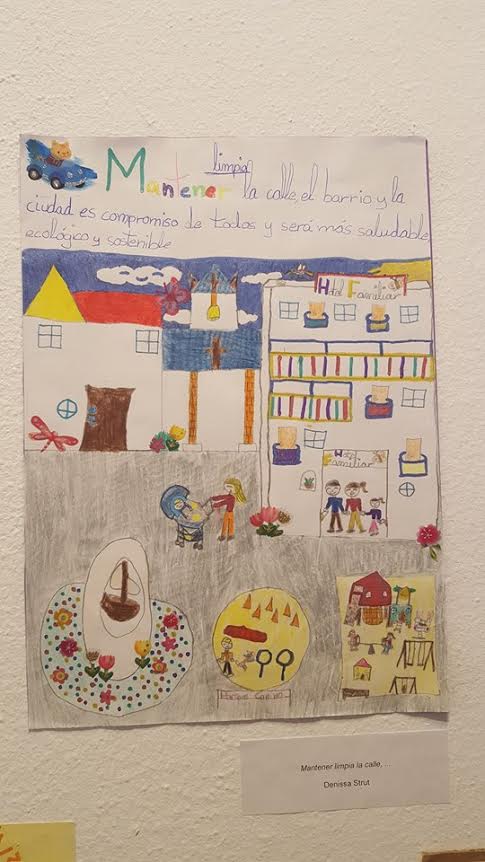 limpia
Mantener la calle, el barrio y la
ciudad es compromiso de todos y será más saludable,
ecológico y sostenible
Hotel Familiar
Hotel
Familiar
Parque Canino
Mantener limpia la calle, ...
Denissa Strut